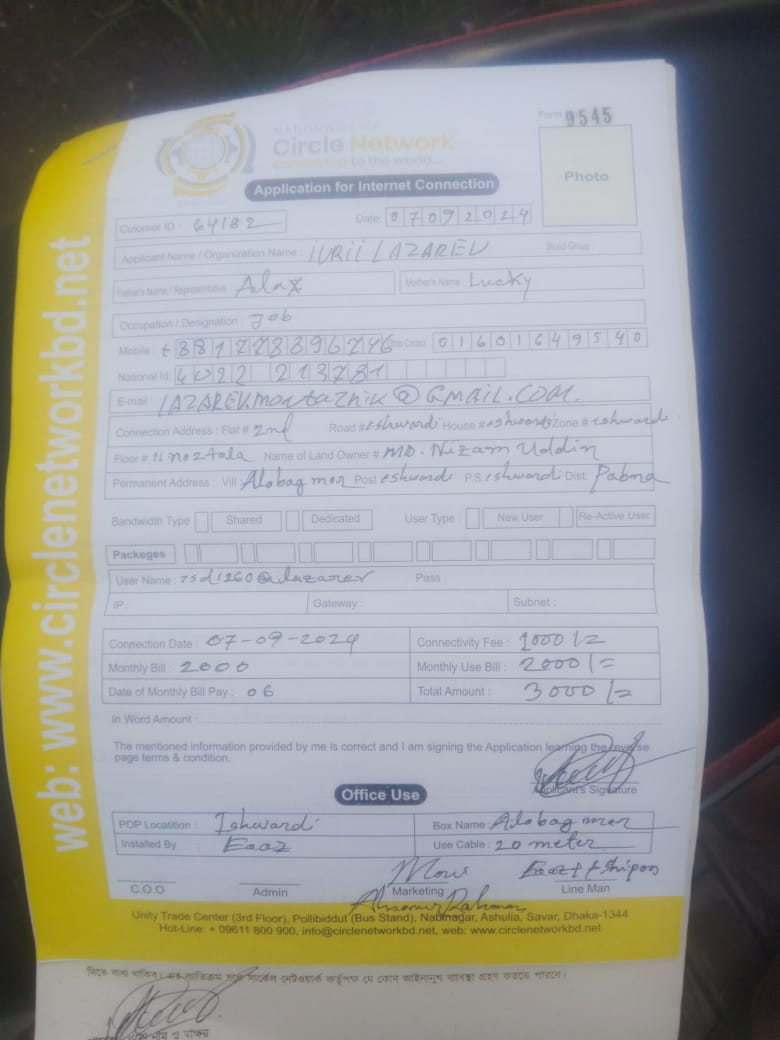 Form 9545
NATIONWIDE ISP
Circle Network
Connected to the world...
Application for Internet Connection
Photo
Cutomer ID : 64182 Date: 07092024
Applicant Name / Organization Name : IURII LAZAREV Blood Group :
Father's Name / Representative : Alax Mother's Name : Lucky
Occupation / Designation : Job
Mobile : +8817728396746 01601649540
National Id: 4022 213781
E-mail : LAZAREV.montaznik@GMAIL.COM.
Connection Address : Flat # 2nd Road # eshwardi House # eshwardi Zone # eshwardi
Floor # Name of Land Owner # MD. Nizam Uddin
Permanent Address : Vill: Alobag mor Post eshwardi P.S eshwardi Dist: Pabna
Bandwidth Type Shared Dedicated User Type : New User Re-Active User
Packeges
User Name : rsd1260@ Pass :
IP : Gateway : Subnet :
Connection Date : 07-09-2024 Connectivity Fee : 1000/=
Monthly Bill : 2000 Monthly Use Bill : 2000/=
Date of Monthly Bill Pay : 06 Total Amount : 3000/=
In Word Amount :
The mentioned information provided by me is correct and I am signing the Application learning the reverse
page terms & condition.
Applicant's Signature
Office Use
POP Locatition : Ishwardi Box Name : Alobag mor
Installed By : Eaaz Use Cable : 20 meter
C.O.O Admin Marketing Line Man
Unity Trade Center (3rd Floor), Pollibiddut (Bus Stand), Nabinagar, Ashulia, Savar, Dhaka-1344
Hot-Line: + 09611 800 900, info@circlenetworkbd.net, web: www.circlenetworkbd.net
web: www.circlenetworkbd.net
দিতে বাধ্য থাকিব। এর ব্যতিক্রম হলে সার্কেল নেটওয়ার্ক কর্তৃপক্ষ যে কোন আইনানুগ ব্যবস্থা গ্রহণ করতে পারবে।
নাম ও স্বাক্ষর